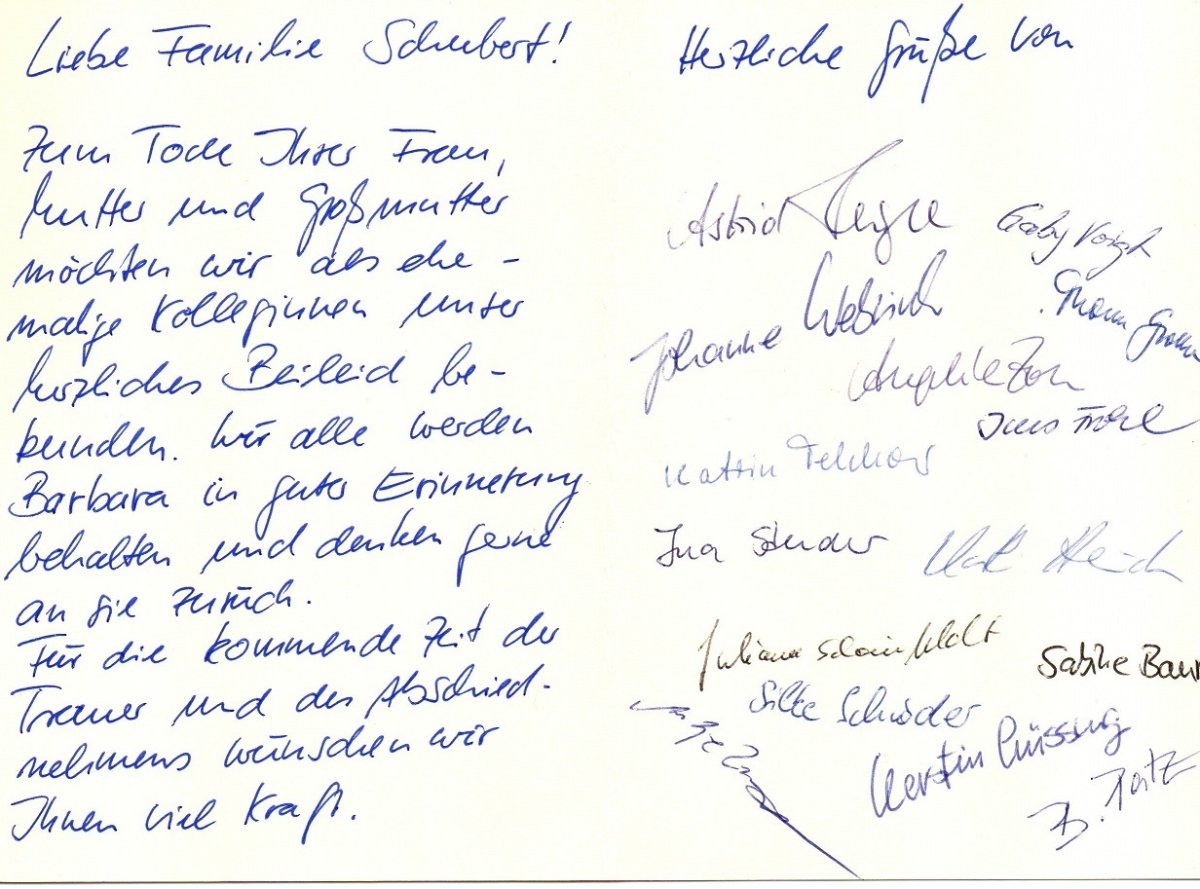 Liebe Familie Schubert!
Zum Tode Ihrer Frau,
Mutter und Großmutter
möchten wir als ehe-
malige Kolleginnen unser
herzliches Beileid be-
kunden. Wir alle werden
Barbara in guter Erinnerung
behalten und denken gerne
an sie zurück.
Für die kommende Zeit der
Trauer und des Abschied-
nehmens wünschen wir
Ihnen viel Kraft.
Herzliche Grüße von
Astrid
Gaby Voigt
Johanne
Katrin
Ina
Juliane
Sabine
Silke Schröder
Kerstin
B.